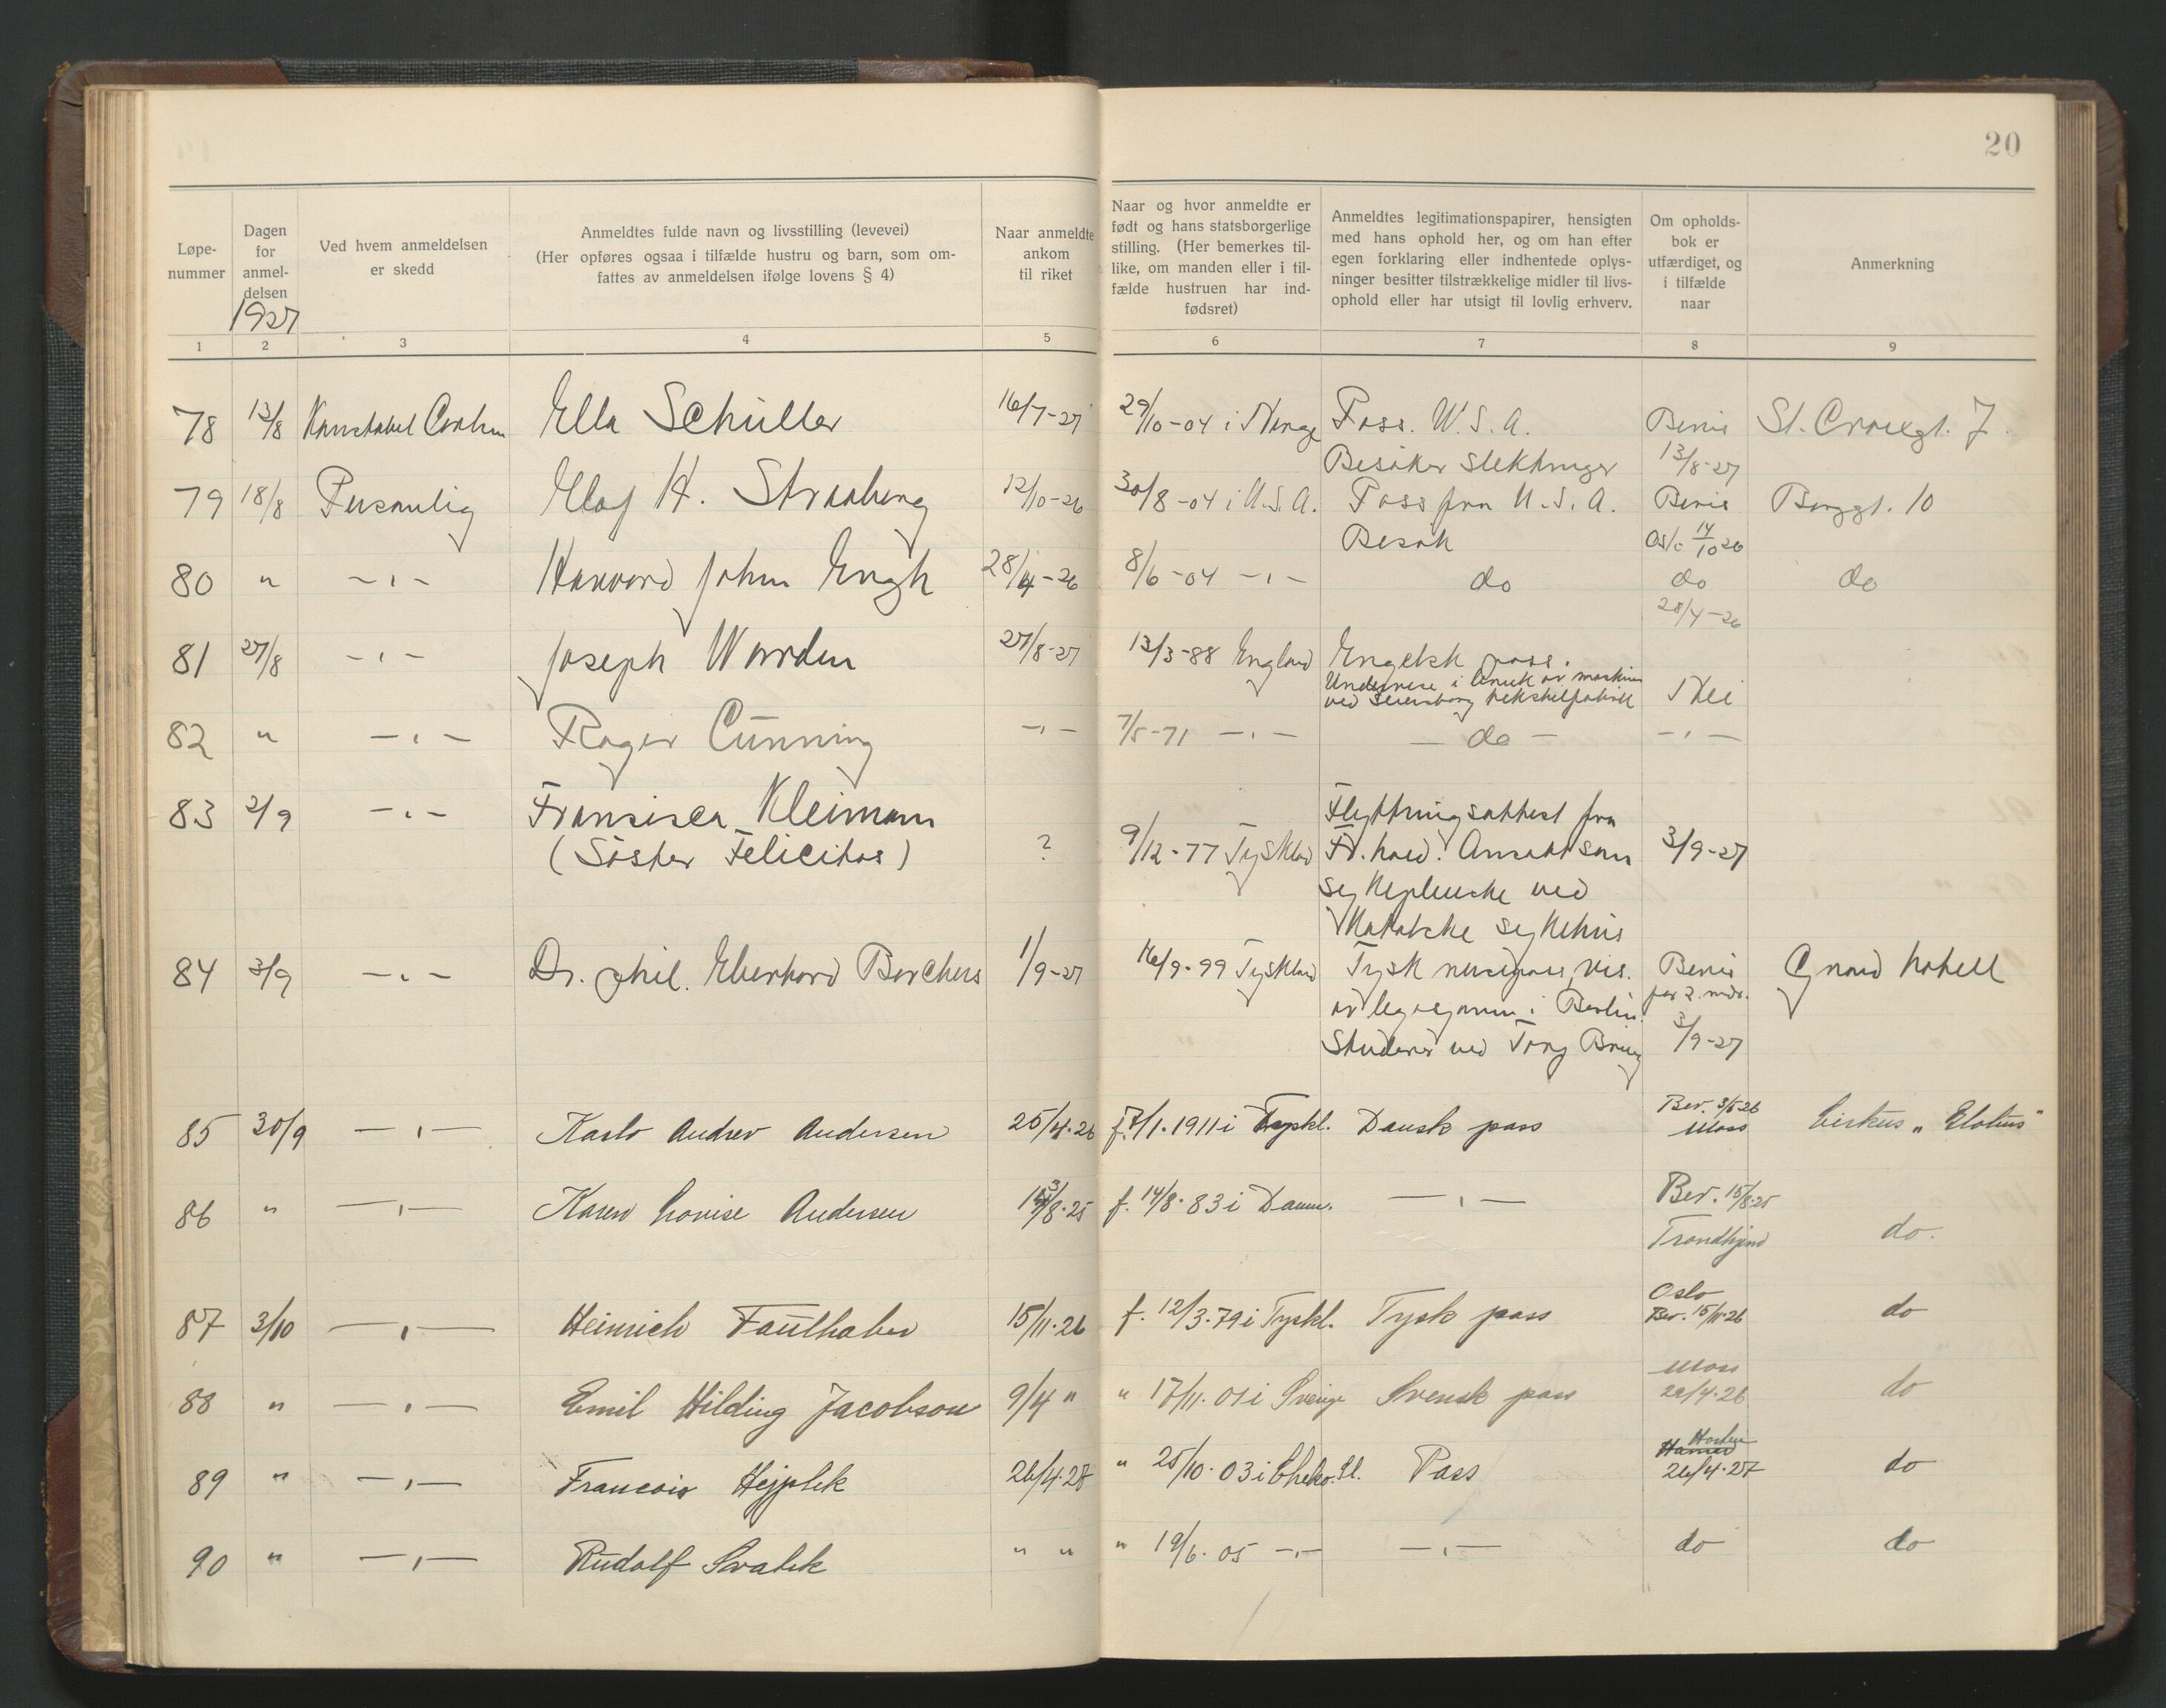 20
Løpe-
nummer
Dagen
for
anmel-
delsen
1927
Ved hvem anmeldelsen
er skedd
Anmeldtes fulde navn og livsstilling (levevei)
(Her opføres ogsaa i tilfælde hustru og barn, som om-
fattes av anmeldelsen ifølge lovens § 4)
Naar anmeldte
ankom
til riket
Naar og hvor anmeldte er
født og hans statsborgerlige
stilling. (Her bemerkes til-
like, om manden eller i til-
fælde hustruen har ind-
fødsret)
Anmeldtes legitimationspapirer, hensigten
med hans ophold her, og om han efter
egen forklaring eller indhentede oplys-
ninger besitter tilstrækkelige midler til livs-
ophold eller har utsigt til lovlig erhverv.
Om opholds-
bok er
utfærdiget, og
i tilfælde
naar
Anmerkning
1 2 3 4 5 6 7 8 9
78 13/8 Konstabel Ella Schüller 16/7-27 29/10-04 i Norge Pass. U.S.A. Bevis St. Croixgt. 7
Besøker slektninger 13/8-27
79 18/8 Personlig Olaf H. Straaberg 12/10-26 30/8-04 i U.S.A. Pass fra U.S.A. Bevis Borggt. 10
Besøk Oslo 14/10 26
80 " -,- Haavard John Engh 28/4-26 8/6-04 -,- do do do
28/4-26
81 27/8 -,- Joseph Worden 27/8-27 13/3-88 England Engelsk pass.
Undervise i bruk av maskin
ved tekstilfabrikk
82 " -,- Roger Cunning -,- 7/5-71 -,- - do - -,-
83 2/9 -,- Fransisca Kleimann Flyttningsattest fra
(Søster Felicitas) ? 9/12-77 Tyskland Fr.hald. Ansatt som 3/9-27
sykepleierske ved
Katolske sykehus
84 3/9 -,- Dr. phil. Eberhard Borchers 1/9-27 16/9-99 Tyskland Tysk reisepass, vis. Bevis Grand hotell
av legasjonen i Berlin. for 2 mdr.
Studerer ved 3/9-27
85 30/9 -,- Karlo Andrev Andersen 25/4.26 f. 7/1.1911 i Tyskl. Dansk pass Bev. 3/5 26 Cirkus "
Moss
86 " -,- Karen Lovise Andersen 13/8.25 f. 14/8.83 i Danm. -,- Bev. 15/8.25
Trondhjem do.
87 3/10 -,- Heinrich Faulhaber 15/11.26 f. 12/3.79 i Tyskl. Tysk pass Oslo do
Bev. 15/11.26
88 " -,- Emil Hilding Jacobson 9/4 " " 17/11.01 i Sverige Svensk pass Moss do
22/4.26
89 " -,- Francois Hejplik 26/4.27 " 25/10.03 i Pass Horten do
26/4.27
90 " -,- Rudolf Svatek " " " 19/6.05 -,- -,- do do